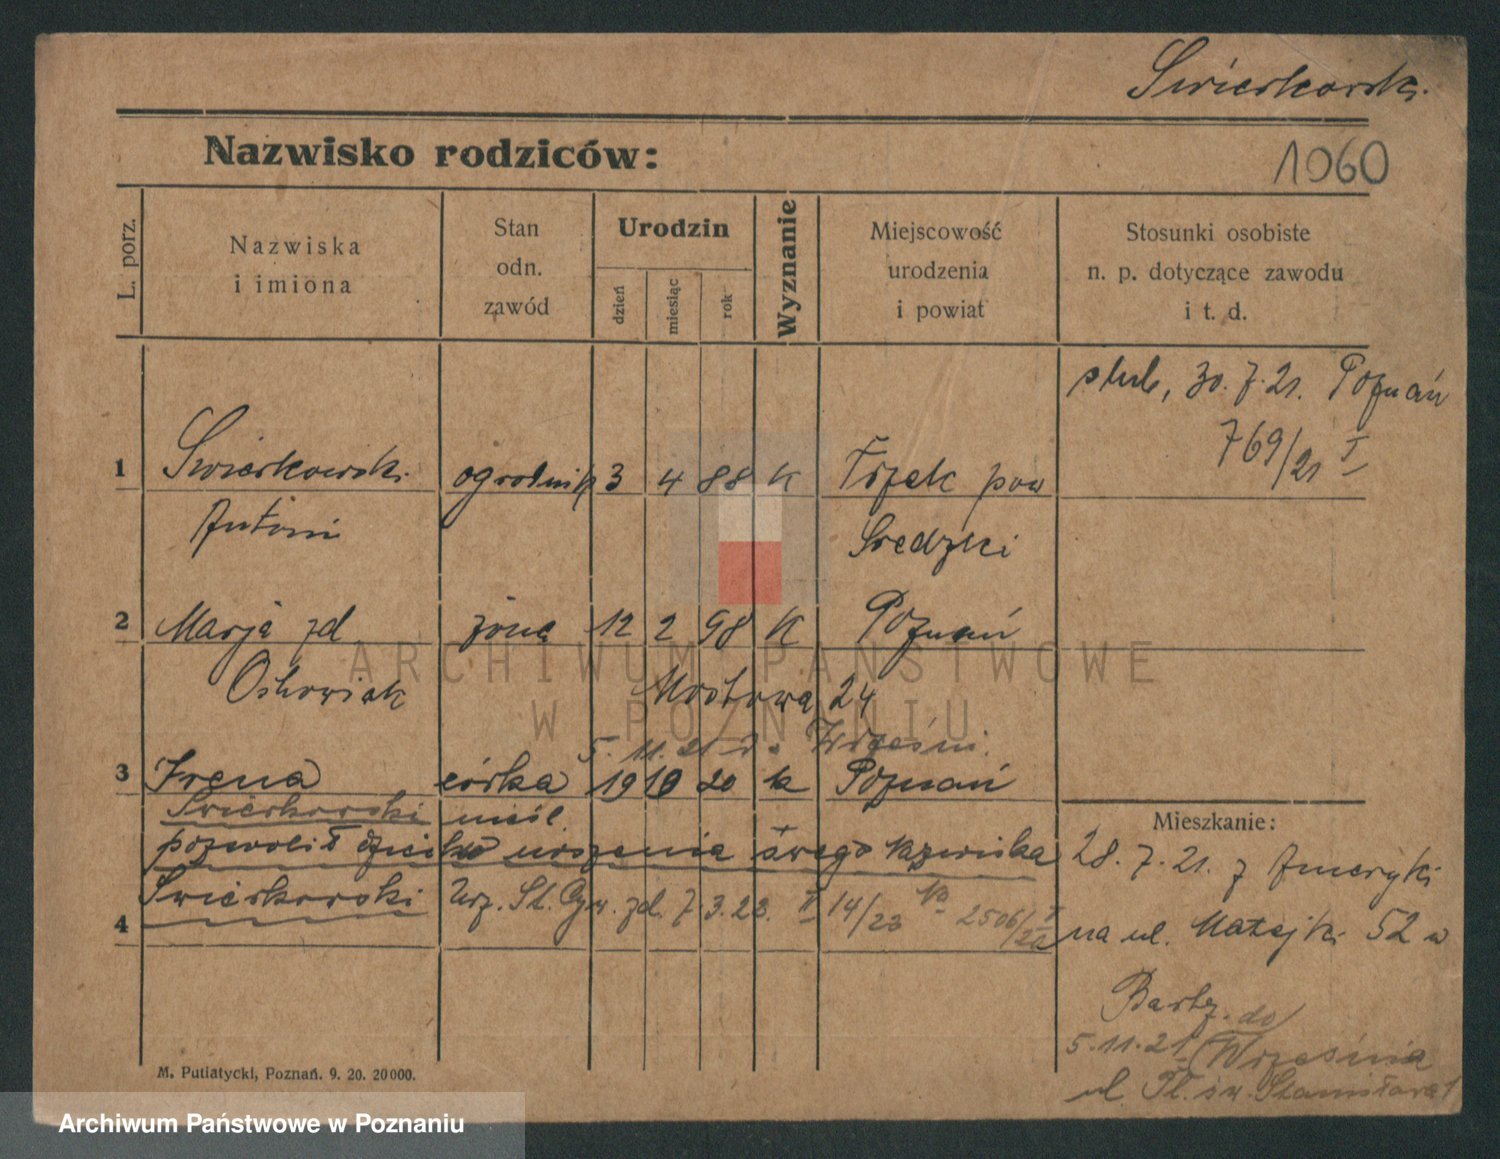 Swierkowski.
1060
Nazwisko rodziców:
L. porz.
Nazwiska
i imiona
Stan
odn.
zawód
Urodzin
dzień
miesiąc
rok
Wyznanie
Miejscowość
urodzenia
i powiat
Stosunki osobiste
n. p. dotyczące zawodu
i t. d.
ślub, 30. 7. 21. Poznań
769/21 I
1 Swierkowski ogrodnik 3 4 88 K Trzek pow
Antoni Sredzki
2 Marja zd żona 12 2 98 K Poznań
Mostowa 24
5. 11. 21 Wrześni.
3 Irena córka 19 10 20 k Poznań
Swierkowski
pozwolił dziecku noszenia swego nazwiska
Swierkowski 7. 3. 23. II 14/23 2506/
4
Mieszkanie:
28. 7. 21. z Ameryki
na ul. Matejki 52 w
Bartz.
5. 11. 21 do Wrześnie
ul. Pl. św. Stanisława 1
M. Putiatycki, Poznań. 9. 20. 20000.
ARCHIWUM PAŃSTWOWE
W POZNANIU
Archiwum Państwowe w Poznaniu